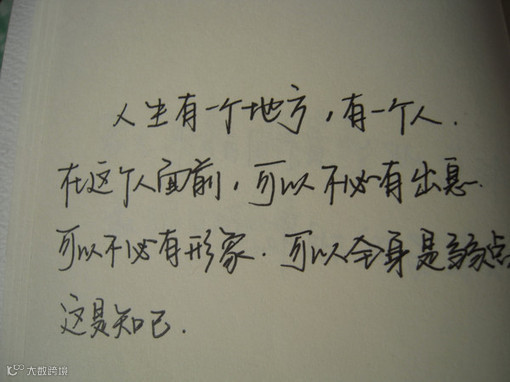 人生有一个地方，有一个人．
在这个人面前，可以不必有出息．
可以不必有形象．可以全身是弱点
这是知己．
大数跨境